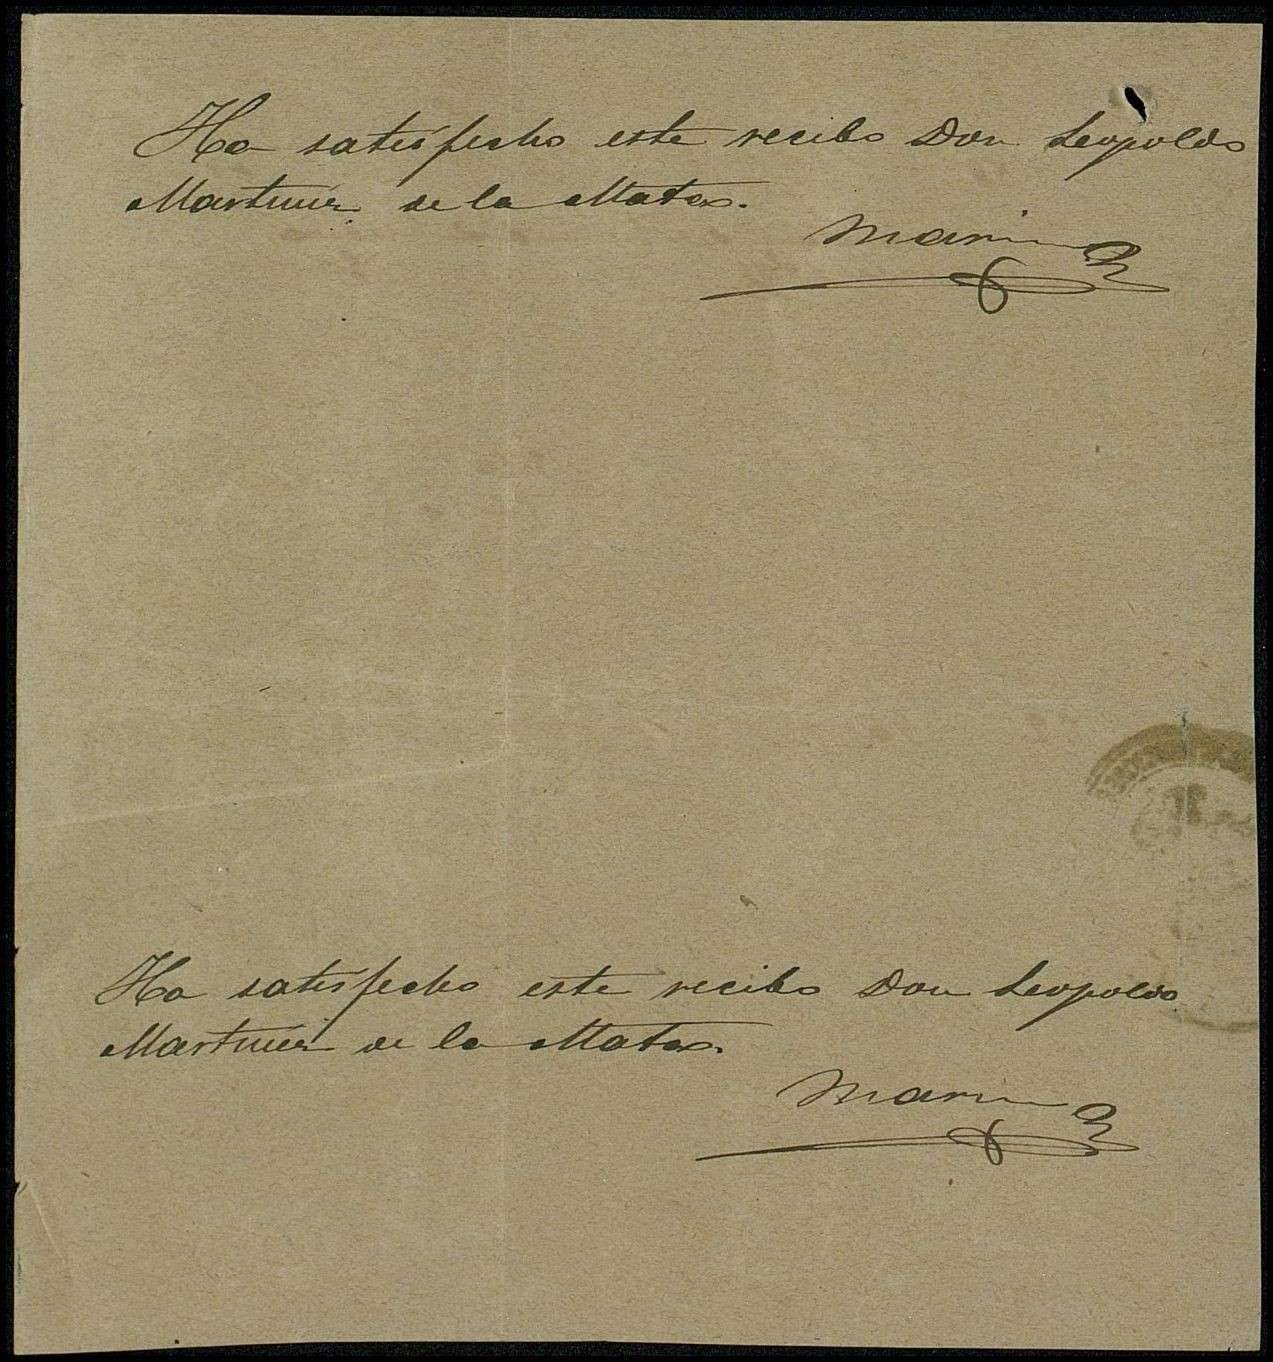 Ha satisfecho este recibo Don Leopoldo
Martinez de la Mata.
Marin
Ha satisfecho este recibo Don Leopoldo
Martinez de la Mata.
Marin